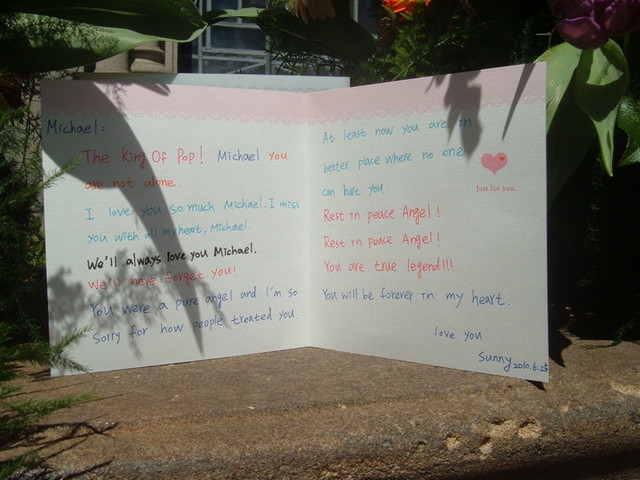 Michael:
The King Of Pop! Michael you
are not alone..
I love you so much Michael. I miss
you with all my heart, Michael.
We'll always love you Michael.
We'll never forget you!
You were a pure angel and I'm so
sorry for how people treated you.
At least now you are in
better place where no one
can hurt you
Just for you.
Rest in peace Angel!
Rest in peace Angel!
You are true legend!!!
You will be forever in my heart.
love you
Sunny
2010.6.25